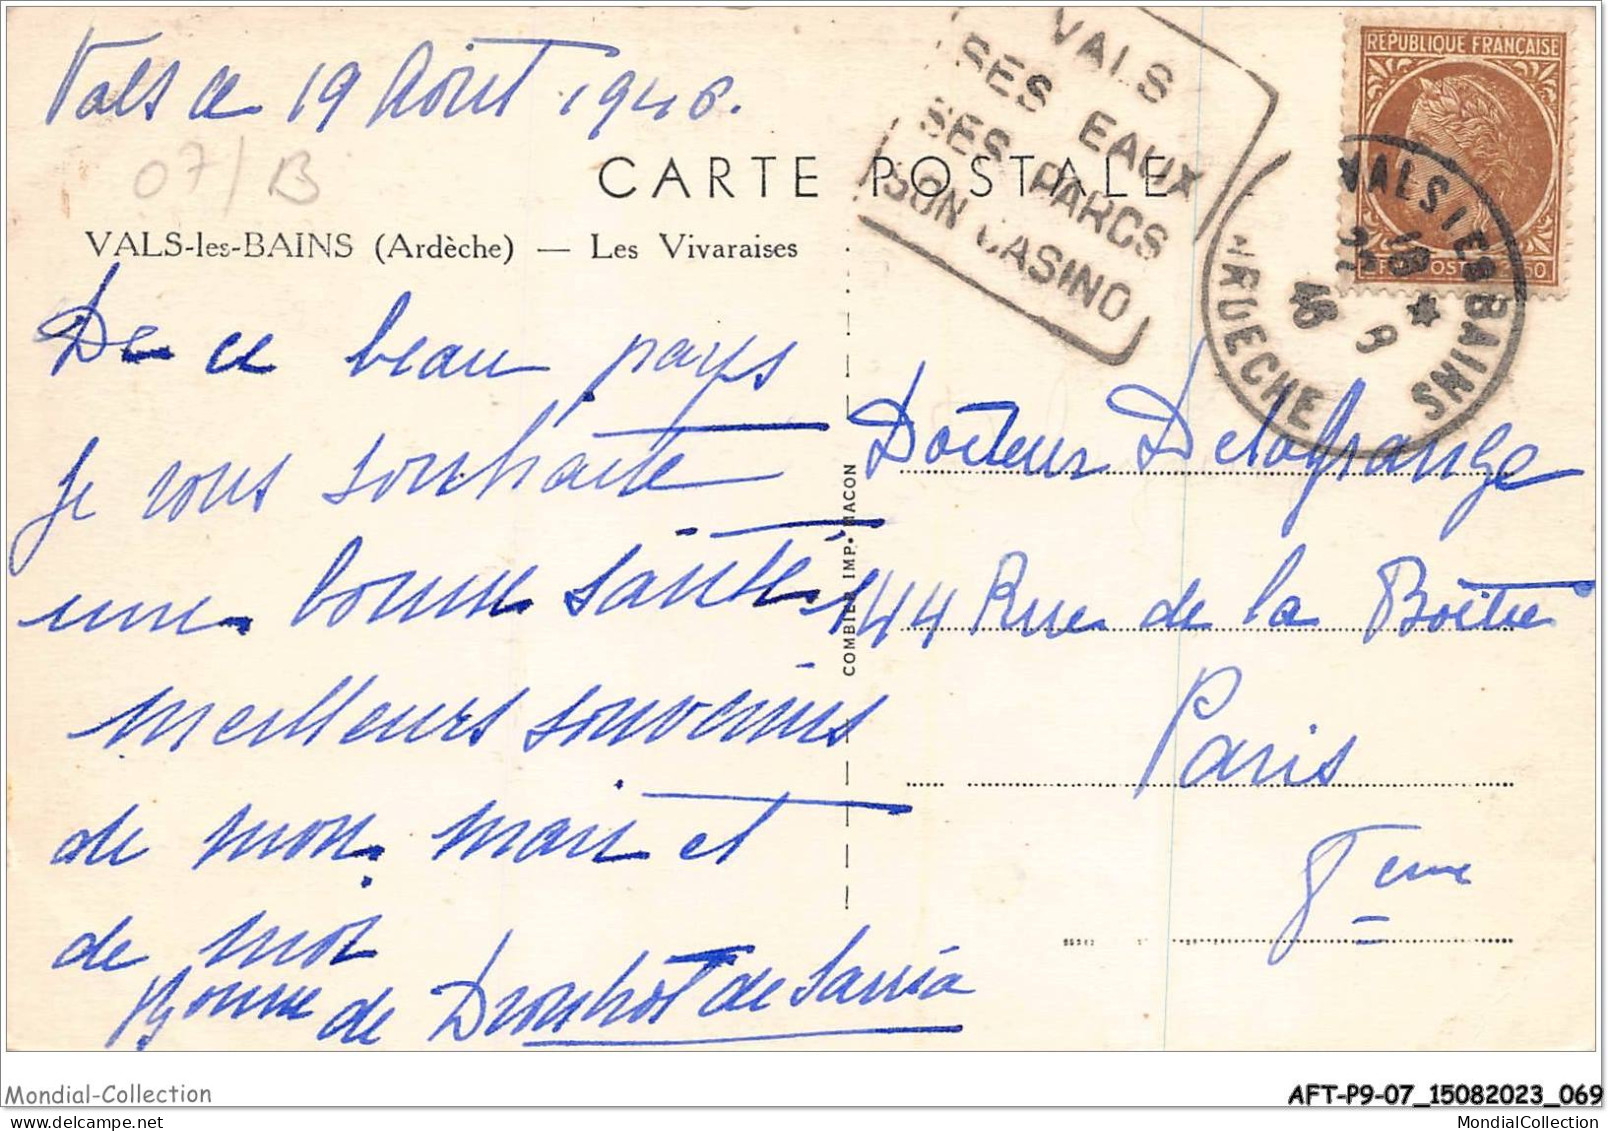 Vals ce 19 Août 1946.
07/B
CARTE POSTALE
VALS-les-BAINS (Ardèche) — Les Vivaraises
VALS
SES EAUX
SES PARCS
SON CASINO
RÉPUBLIQUE FRANÇAISE
VALS LES BAINS
18
8
ARDECHE
De ce beau pays
je vous souhaite
une bonne santé
meilleurs souvenirs
de mon mari et
de moi
Yvonne de Drouhot de Sarria
COMBIER IMP. MACON
Docteur Delagrange
144 Rue de la Boëtie
Paris
8eme
Mondial-Collection
AFT-P9-07_15082023_069
www.delcampe.net
MondialCollection